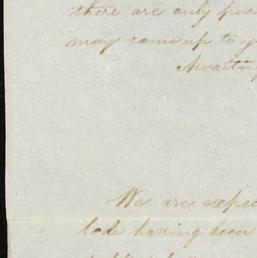 there are only
may come up to y
Awaiting
We are expec
having been